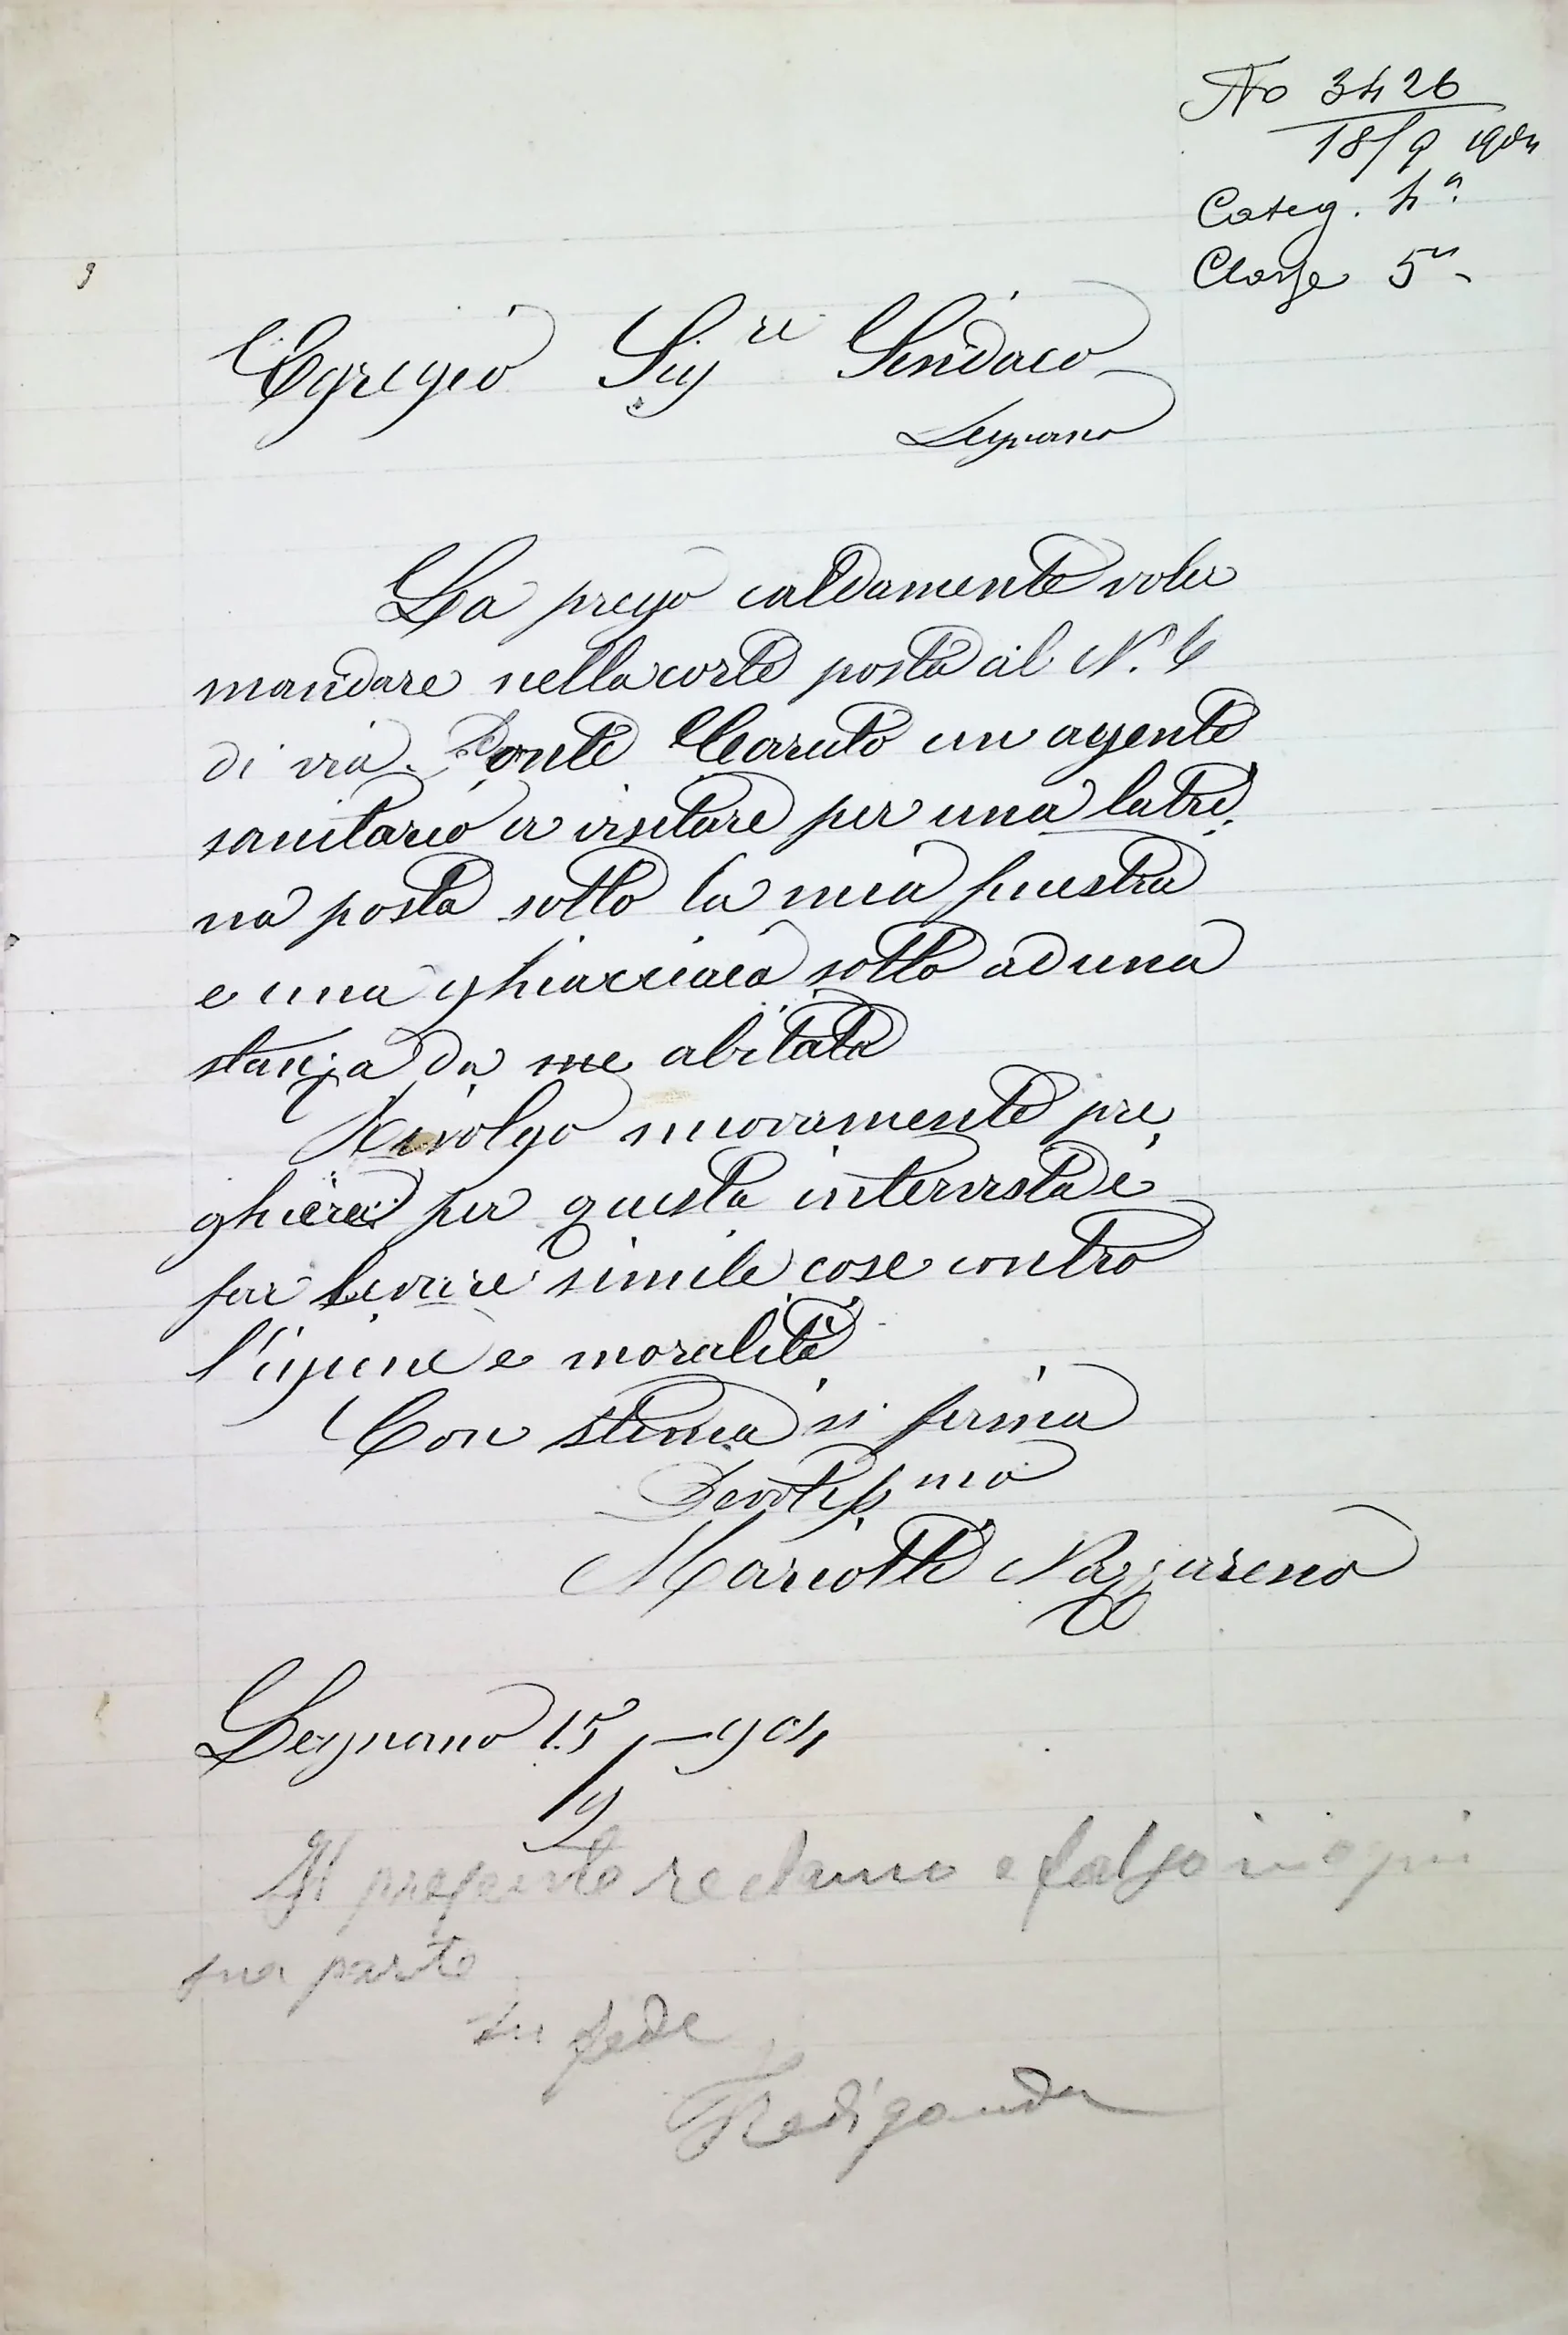 No 3426
18/9 1904
Categ. 4a
Classe 5a
Egregio Sigre Sindaco
Legnano
La prego caldamente voler
mandare nella corte posta al N.° 6
di via. Ponte Carrato un agente
sanitario a visitare per una latri,
na posta sotto la mia finestra
e una ghiacciaia sotto ad una
stanza da me abitata
Rivolgo nuovamente pre,
ghiera per questa intervista e
far levare simile cose contro
l'igiene e moralità
Con stima si firma
Devotissmo
Mariotti Nazzareno
Legnano 15/9 - 904
Il presente reclamo e falso in ogni
sua parte
In fede